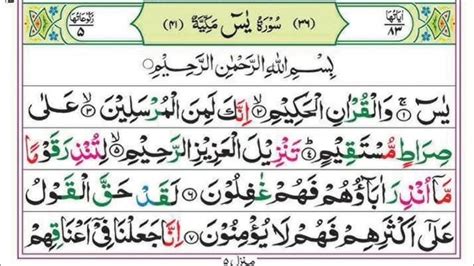 رُكُوعَاتُهَا ٥ (٣٦) سُوْرَةُ يٰسٓ مَكِّيَّةٌ (٤١) اٰيَاتُهَا ٨٣
بِسْمِ اللّٰهِ الرَّحْمٰنِ الرَّحِيْمِ
يٰسٓ ۚ‏﴿۱﴾ وَالْقُرْاٰنِ الْحَكِيْمِ ۙ‏﴿۲﴾ اِنَّكَ لَمِنَ الْمُرْسَلِيْنَ ۙ‏﴿۳﴾ عَلٰى
صِرَاطٍ مُّسْتَقِيْمٍ ؕ‏﴿۴﴾ تَنْزِيْلَ الْعَزِيْزِ الرَّحِيْمِ ۙ‏﴿۵﴾ لِتُنْذِرَ قَوْمًا
مَّاۤ اُنْذِرَ اٰبَآؤُهُمْ فَهُمْ غٰفِلُوْنَ‏﴿۶﴾ لَقَدْ حَقَّ الْقَوْلُ
عَلٰٓى اَكْثَرِهِمْ فَهُمْ لَا يُؤْمِنُوْنَ‏﴿۷﴾ اِنَّا جَعَلْنَا فِىْۤ اَعْنَاقِهِمْ
منزل ۵